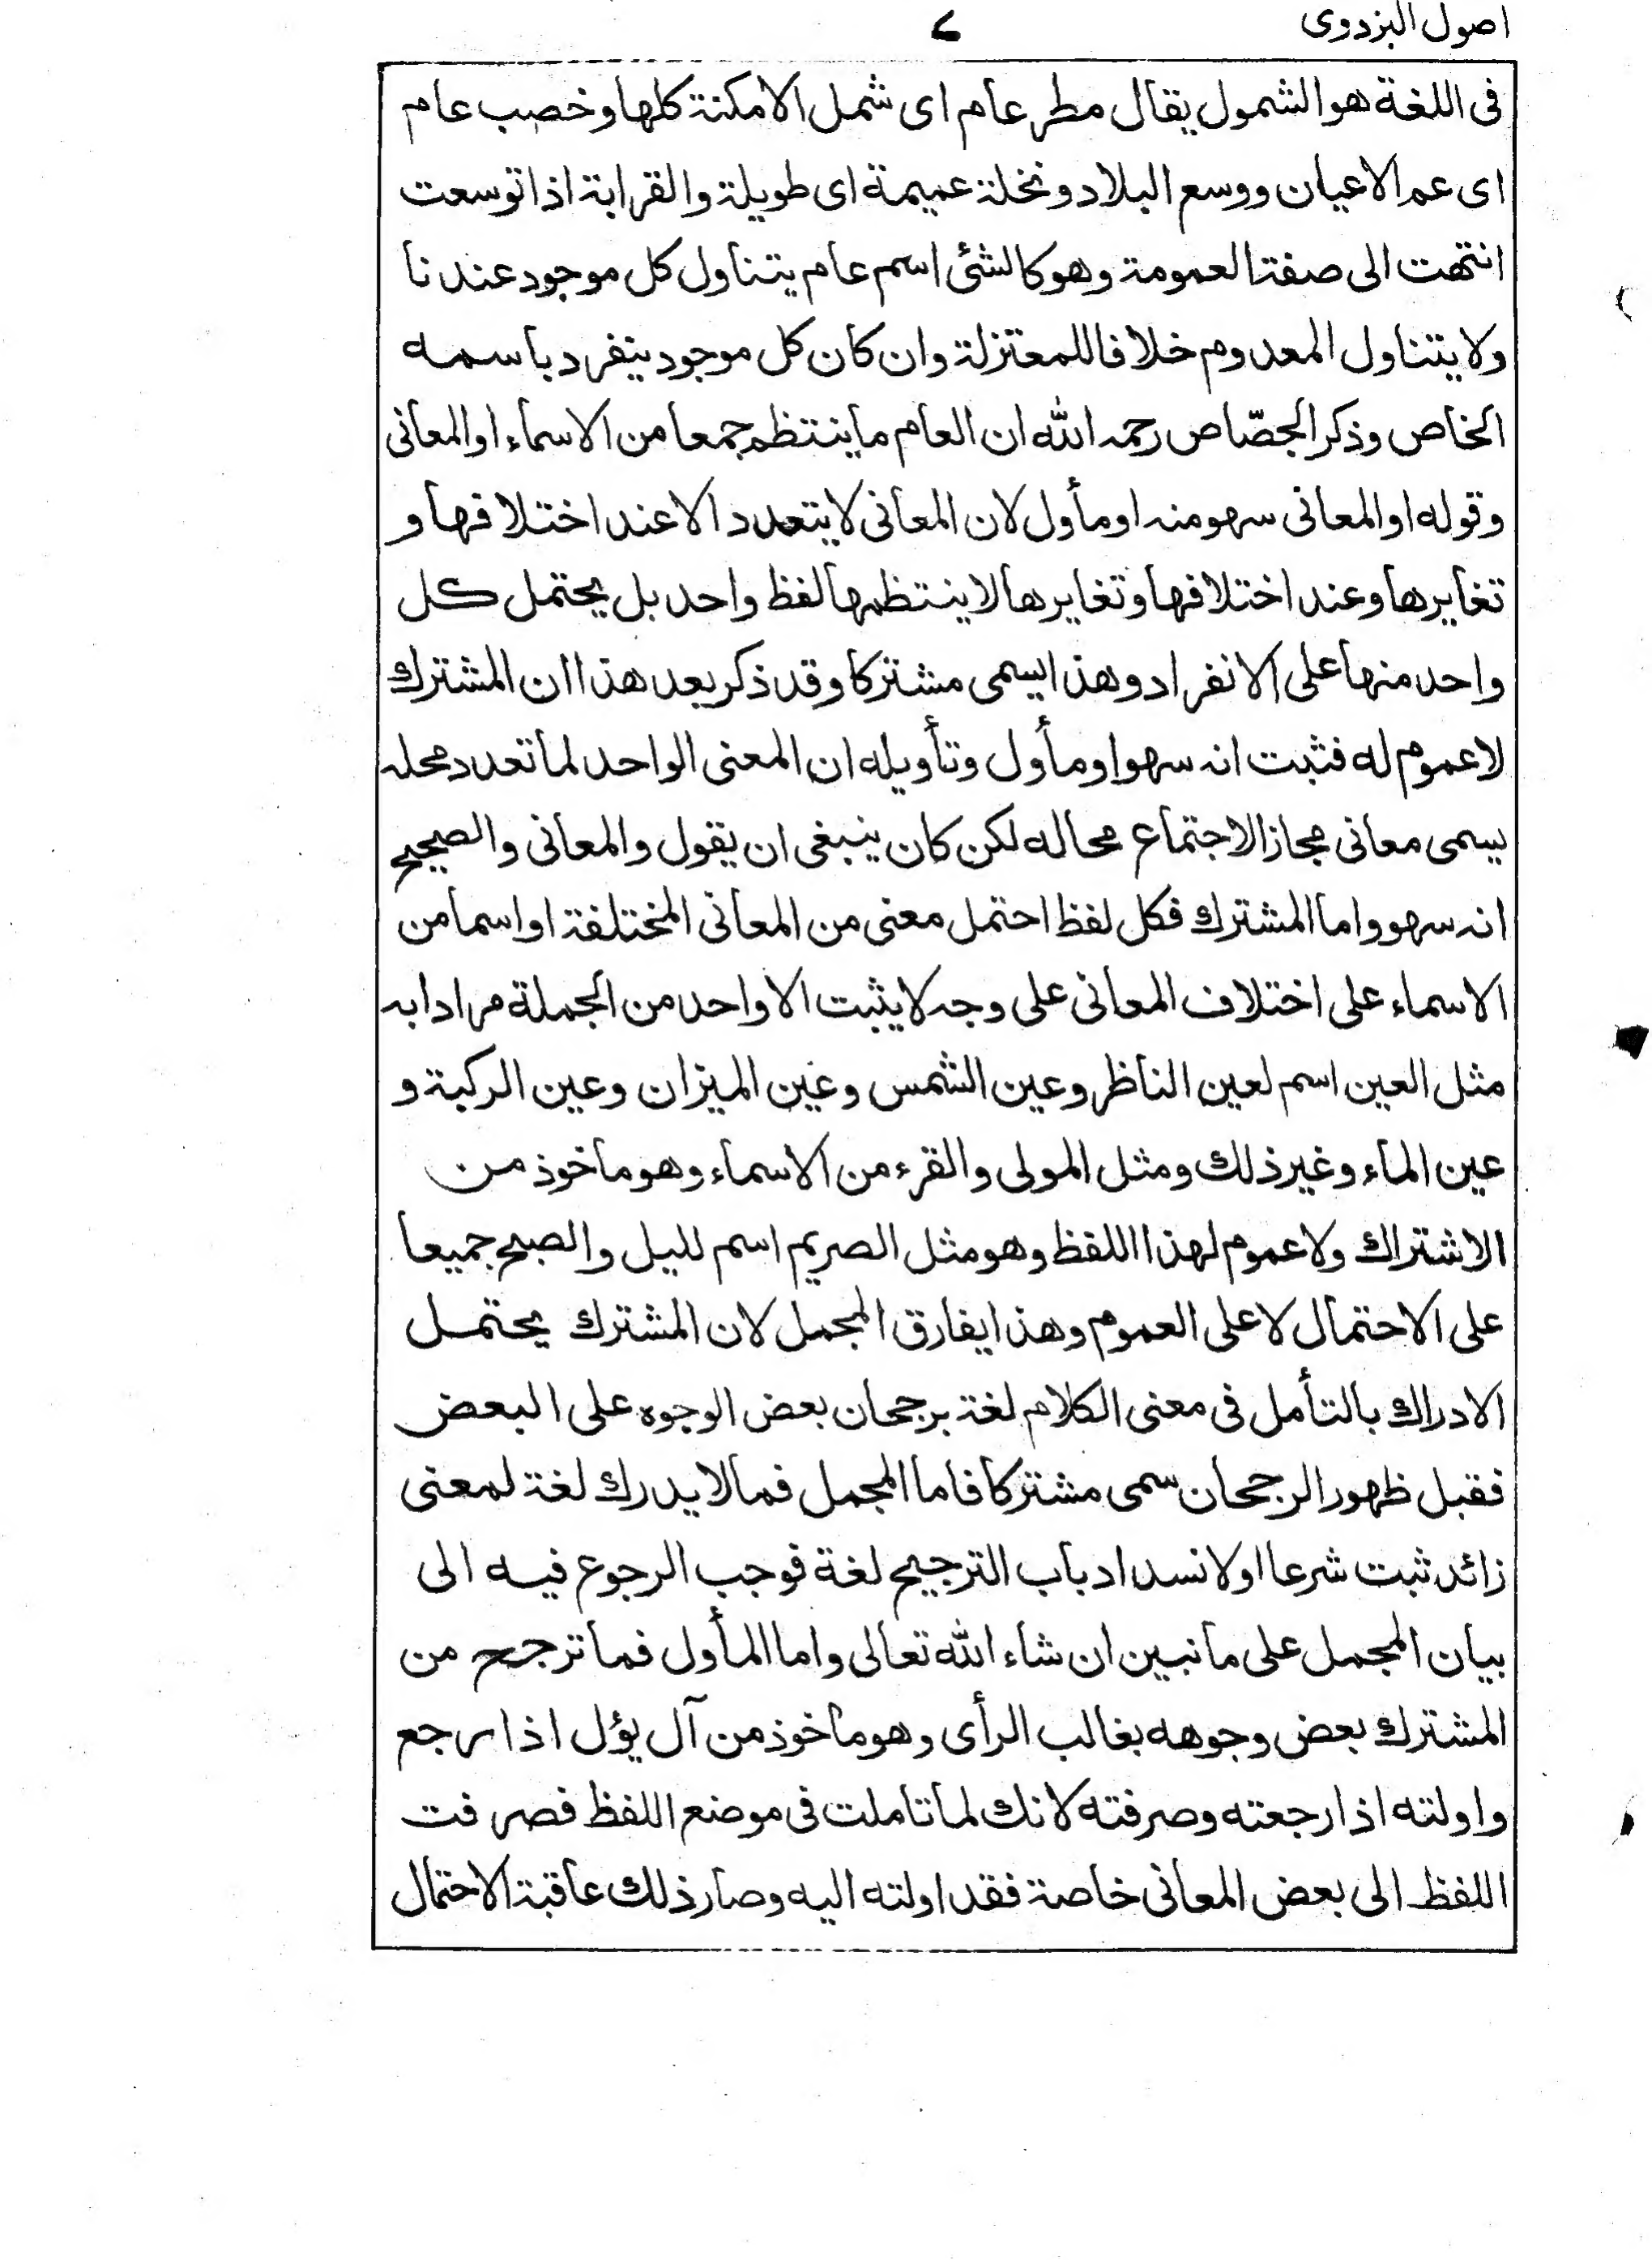 اصول البزدوی ۷
فی اللغة هو الشمول يقال مطر عام ای شمل الامكنة كلها و خصب عام
ای عم الاعيان ووسع البلاد ونخلة عميمة ای طويلة والقرابة اذا توسعت
انتهت الی صفة العمومة وهو كالشئ اسم عام يتناول كل موجود عند نا
ولا يتناول المعدوم خلافا للمعتزلة وان كان كل موجود ينفرد باسمه
الخاص وذكر الجصّاص رحمه الله ان العام ما ينتظم جمعا من الاسماء او المعانی
وقوله او المعانی سهو منه او مأول لان المعانی لا يتعدد الا عند اختلافها و
تغايرها وعند اختلافها وتغايرها لا ينتظمها لفظ واحد بل يحتمل كل
واحد منها علی الانفراد وهذا يسمی مشتركا وقد ذكر بعد هذا ان المشترك
لا عموم له فثبت انه سهو او مأول وتأويله ان المعنی الواحد لما تعدد محله
يسمی معانی مجازا لاجتماع محاله لكن كان ينبغی ان يقول والمعانی والصحيح
انه سهو واما المشترك فكل لفظ احتمل معنی من المعانی المختلفة او اسما من
الاسماء علی اختلاف المعانی علی وجه لا يثبت الا واحد من الجملة مرادا به
مثل العين اسم لعين الناظر وعين الشمس وعين الميزان وعين الركبة و
عين الماء وغير ذلك ومثل المولی والقرء من الاسماء وهو ماخوذ من
الاشتراك ولا عموم لهذا اللفظ وهو مثل الصريم اسم لليل والصبح جميعا
علی الاحتمال لا علی العموم وهذا يفارق المجمل لان المشترك يحتمل
الادراك بالتأمل فی معنی الكلام لغة برجحان بعض الوجوه علی البعض
فقبل ظهور الرجحان سمی مشتركا فاما المجمل فما لا يدرك لغة لمعنی
زائد ثبت شرعا او لانسداد باب الترجيح لغة فوجب الرجوع فيه الی
بيان المجمل علی ما نبين ان شاء الله تعالی واما المأول فما ترجح من
المشترك بعض وجوهه بغالب الرأی وهو ماخوذ من آل يؤل اذا رجع
واولته اذا رجعته وصرفته لانك لما تاملت فی موضع اللفظ فصرفت
اللفظ الی بعض المعانی خاصة فقد اولته اليه وصار ذلك عاقبة الاحتمال